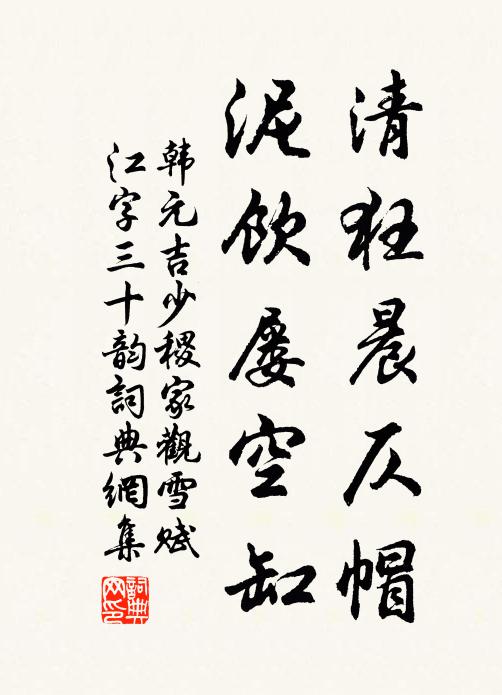 清狂晨仄帽
泥飲屡空缸
韩元吉少稷家觀雪赋
江字三十韵詞典網集